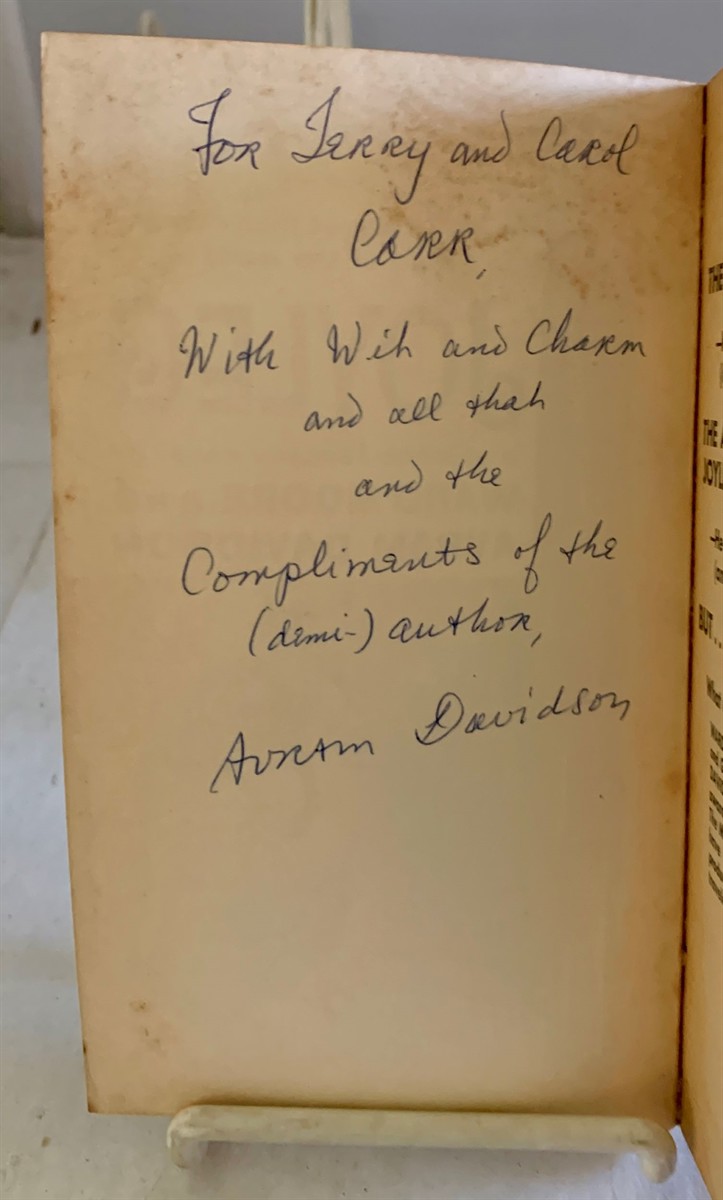 For Terry and Carol
Carr,
With Wit and Charm
and all that
and the
Compliments of the
(demi-) author,
Avram Davidson
THE
THE A
JOYL
BUT...